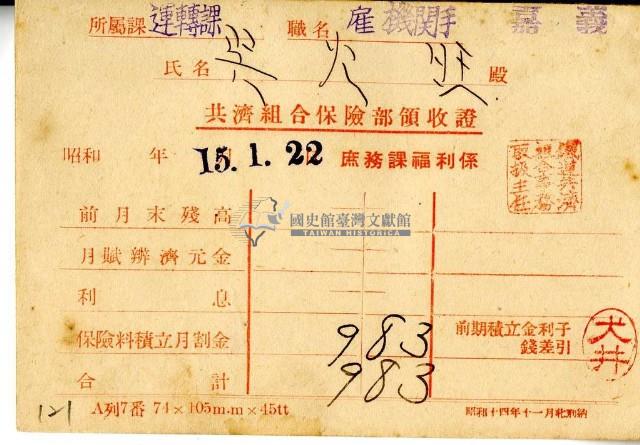 所屬課 運轉課 職名 雇 機関手 嘉義
氏名 吳火 殿
共濟組合保險部領收證
昭和 年 15.1.22 庶務課福利係
鐵道共濟組合事務取扱主任
前月末殘高
國史館臺灣文獻館
TAIWAN HISTORICA
月賦辨濟元金
利息
保險料積立月割金 983 前期積立金利子錢差引
犬井
合計 983
121 A列7番 74×105m.m×45tt 昭和十四年十一月 納